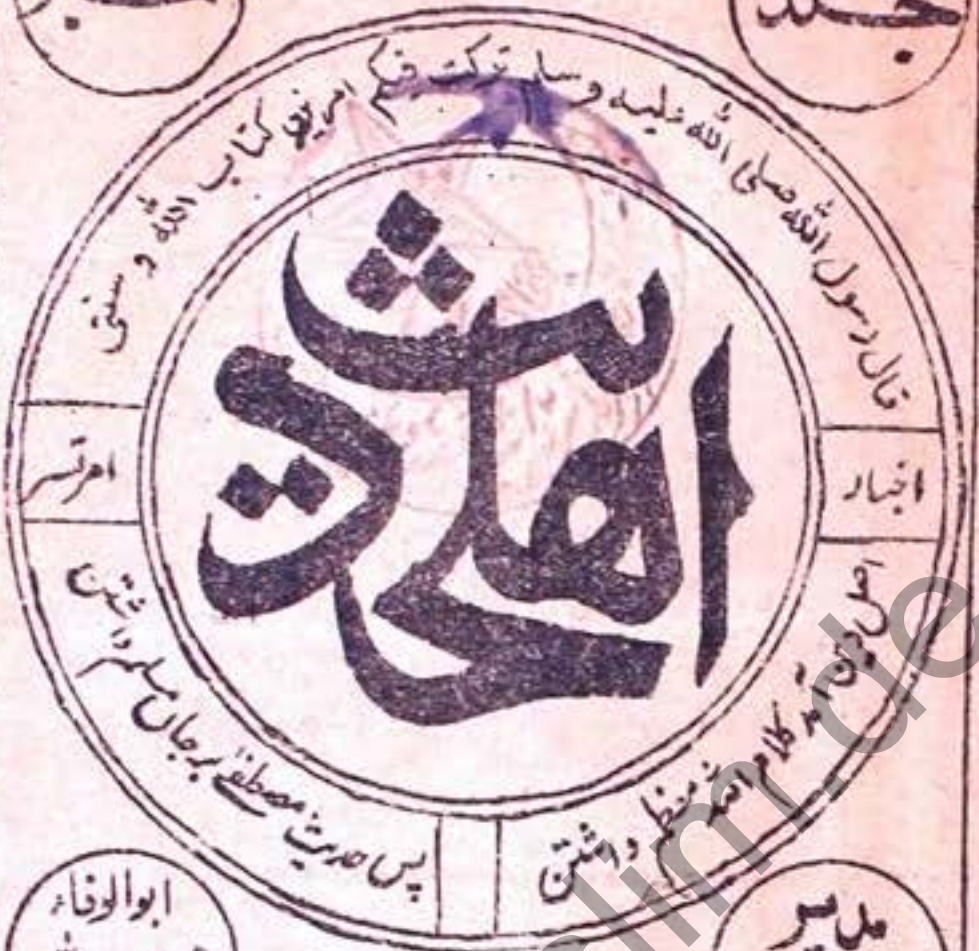 جلد
قال رسول الله صلى الله عليه وسلم تركت فيكم امرين كتاب الله و سنتى
اهلحديث
اخبار
امرتسر
اصل دین آمد کلام اللہ معظم داشتن
پس حدیث مصطفےٰ برجاں مسلم داشتن
ابوالوفاء
مدیر